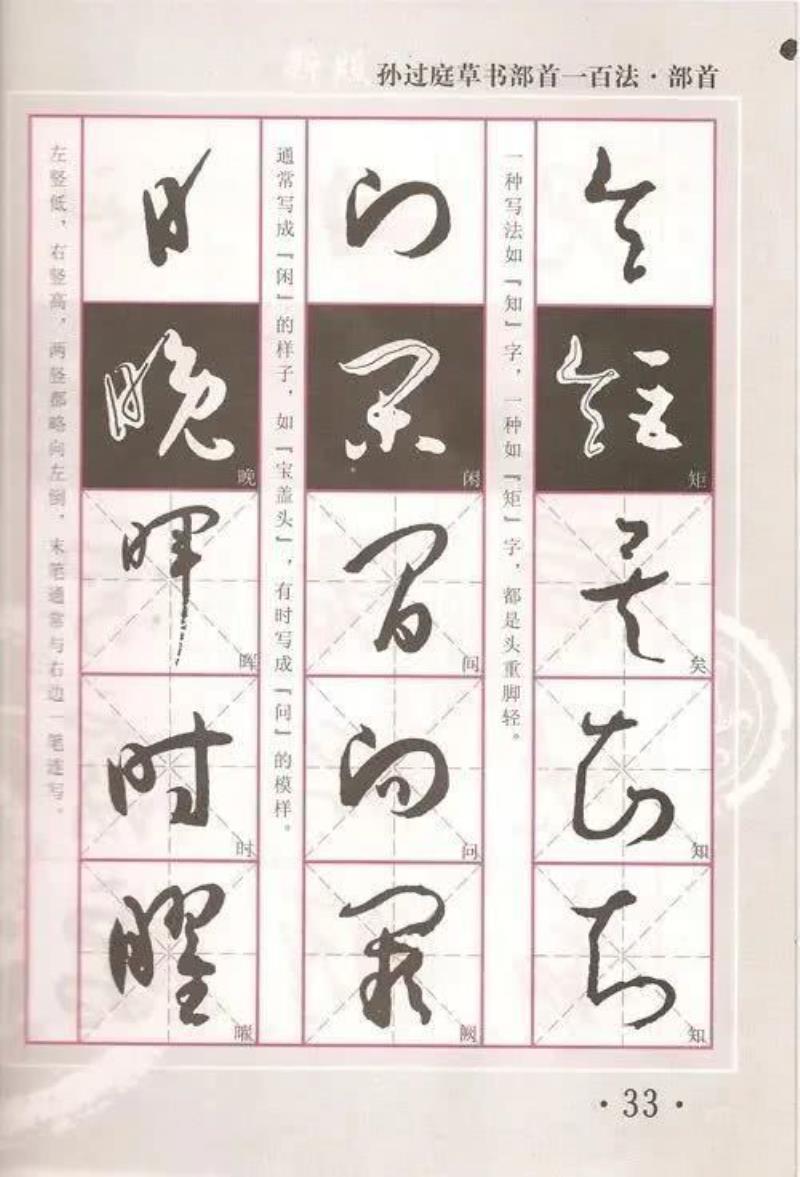 孙过庭草书部首一百法·部首
矩
矣
知
知
一种写法如『知』字，一种如『矩』字，都是头重脚轻。
闲
间
问
阙
通常写成『闲』的样子，如『宝盖头』，有时写成『问』的模样。
晚
晖
时
曜
左竖低，右竖高，两竖都略向左倒，末笔通常与右边一笔连写。
·33·